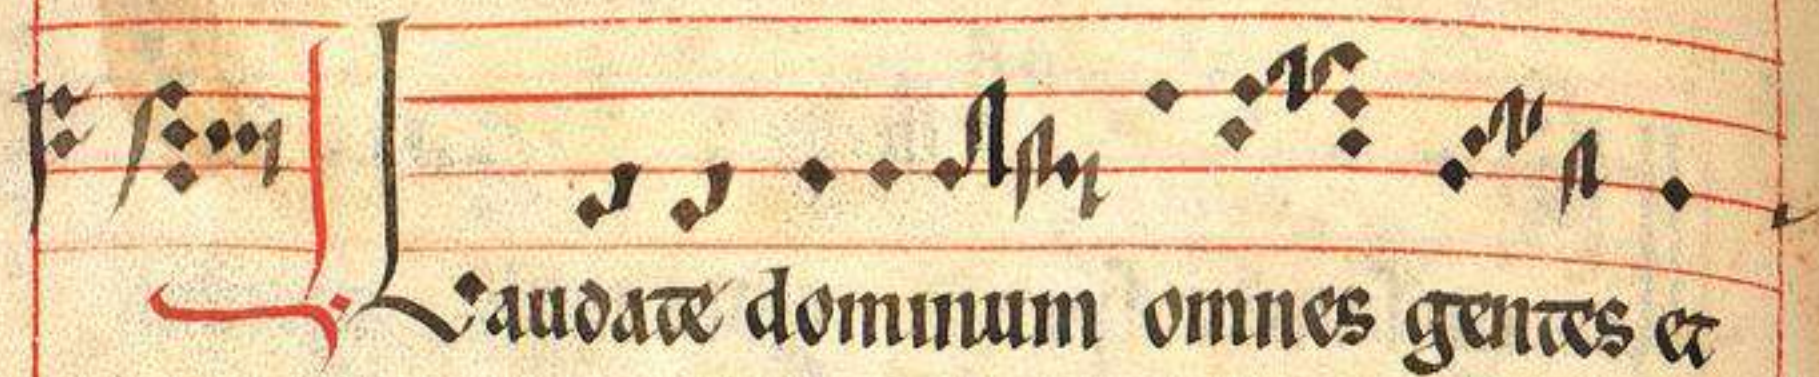 Laudate dominum omnes gentes et